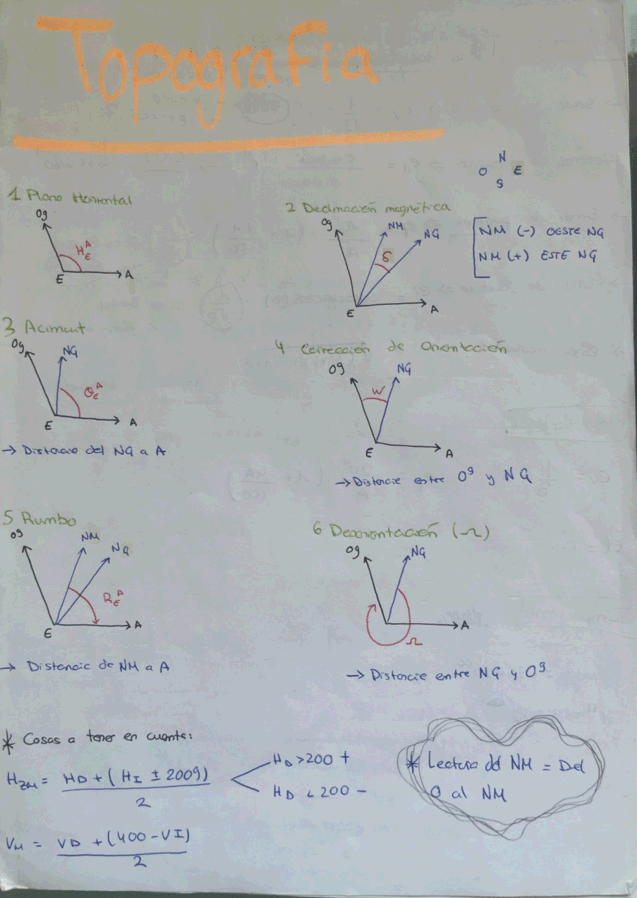 Topografía
N
O E
S
1 Plano Horizontal
0g
H_E^A
E A
2 Declinación magnética
0g NM NG
δ
E A
NM (-) OESTE NG
NM (+) ESTE NG
3 Acimut
0g NG
θ_E^A
E A
→ Distancia del NG a A
4 Corrección de Orientación
0g NG
W
E A
→ Distancia entre 0g y NG
5 Rumbo
0g NM NG
R_E^A
E A
→ Distancia de NM a A
6 Desorientación (-Ω)
0g NG
E A
Ω
→ Distancia entre NG y 0g
* Cosas a tener en cuenta:
HZM = HD + (HI ± 200g) / 2
HD > 200 +
HD < 200 -
VM = VD + (400 - VI) / 2
* Lectura del NM = Del
0 al NM